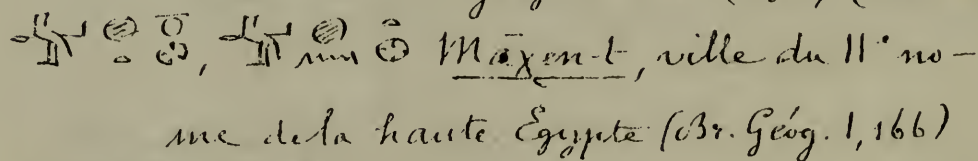 , Māχen-t, ville du 11e no-
me de la haute Égypte (Br. Géog. 1, 166)